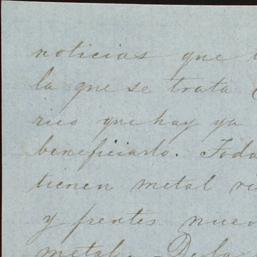 noticias que
la que se trata
rico que hay ya
beneficiarlo. Toda
tienen metal
y frentes nuev
metal. Dela